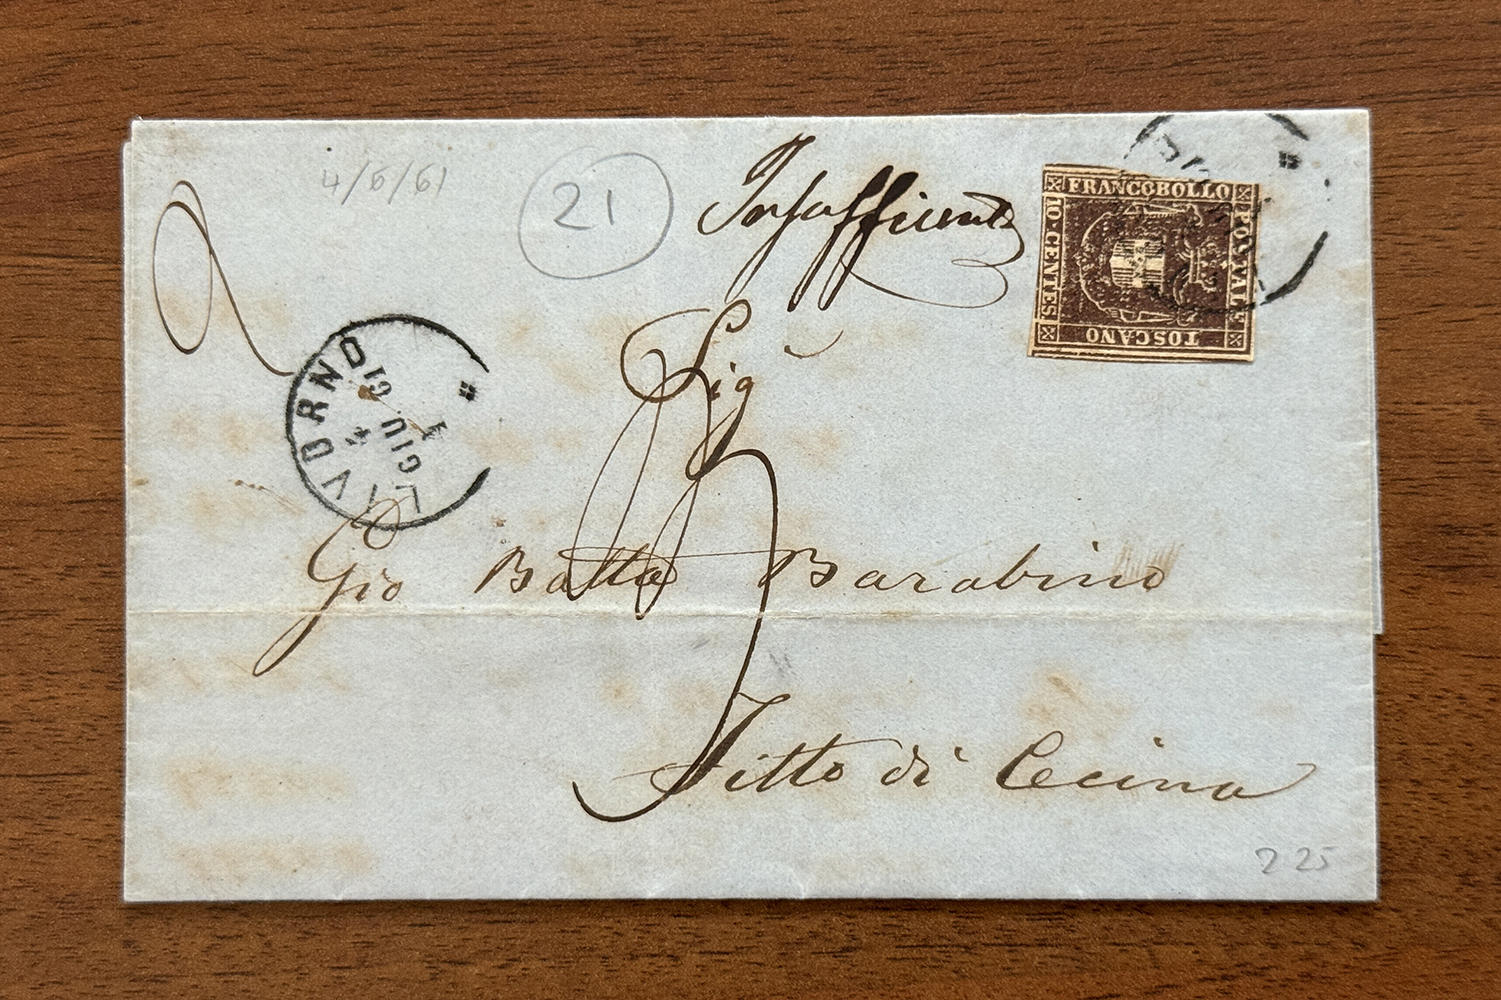 4/6/61
21
Insufficiente
FRANCOBOLLO
POSTALE
TOSCANO
10 · CENTES
LIVORNO
4 GIU 61
Sig
Gio Batta Barabino
Fitto di Cecina
225